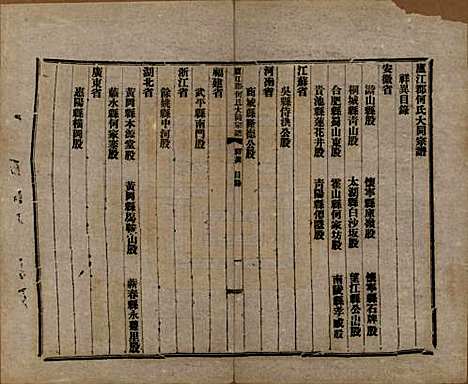 廬江郡何氏大同宗譜
祥異目錄
安徽省
潛山縣股 懷寧縣康嶺股 懷寧縣石牌股
桐城縣青山股 太湖縣白沙坂股 望江縣公出股
合肥縣錫山東股 霍山縣何家坊股 南陵縣孝感股
貴池縣蓮花井股 青陽縣股
江蘇省
吳縣侍洪公股
河南省
商城縣公股
廬江郡何氏大同宗譜 目錄 一
福建省
武平縣南門股
浙江省
餘桃縣中河股
湖北省
黃岡縣木源堂股 黃岡縣馬鞍山股 蘄春縣永豐里股
蘄水縣何家寨股
廣東省
惠陽縣橫岡股